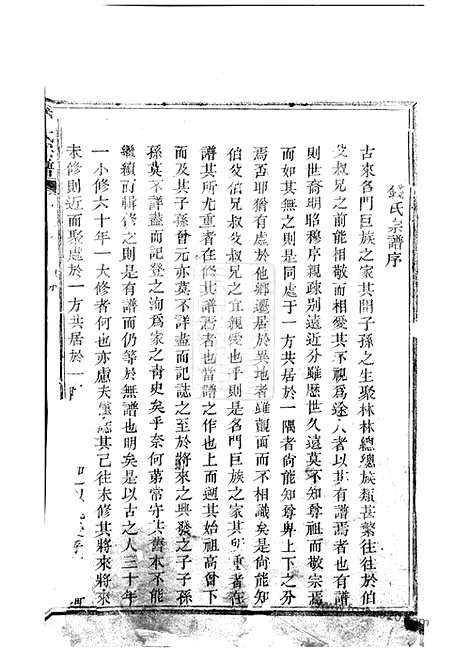 錢氏宗譜序
古來名門巨族之家其間子孫之生聚林林總總族類甚繁往往於伯
父叔兄之前能相敬而相愛其不視為途人者以其有譜焉者也有譜
則世裔明昭穆序親疎別遠近分雖歷世久遠莫不知尊祖而敬宗焉
而如其無之則同是處于一方共居於一隅者尚能知尊卑上下之分
焉否耶猶有處於他鄉遷居於異地者雖覿面而不相識矣是尚能知
伯父叔兄之宜親愛也乎則是名門巨族之家其所重者在
譜其所尤重者在修其譜焉者也當譜之作也上而遡其始祖高曾下
而及其子孫曾元亦莫不詳盡而記誌之至於將來之興發之子子孫
孫莫不詳盡而記登之洵為家之青史矣乎奈何第常守其舊本不能
繼續而輯修之是有譜而仍等於無譜也明矣是以古之人三十年
一小修六十年一大修者何也亦慮夫 誌其已往未修其將來將來
未修則近而聚處於一方共居於一